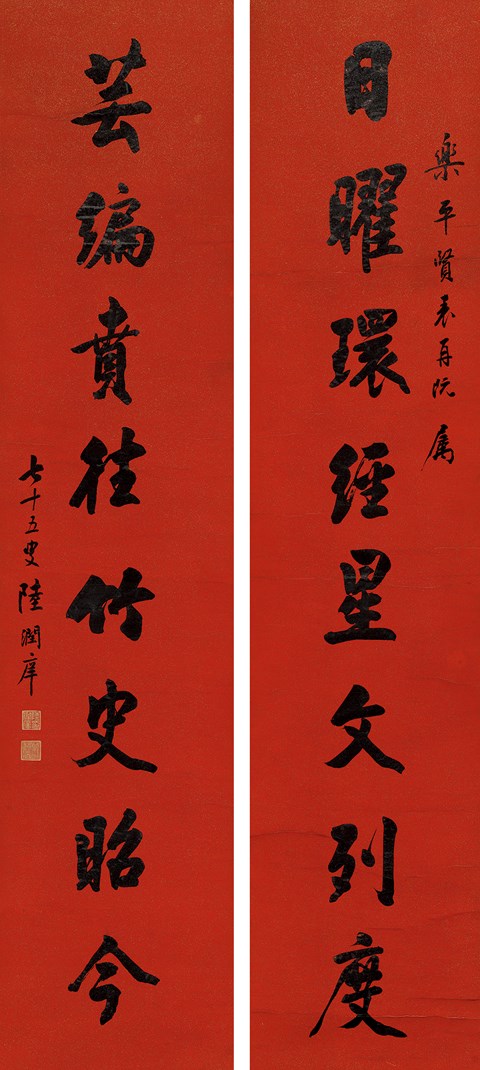 樂平賢表再阮属
日曜環經星文列度
芸編賁往竹史昭今
七十五叟陸潤庠